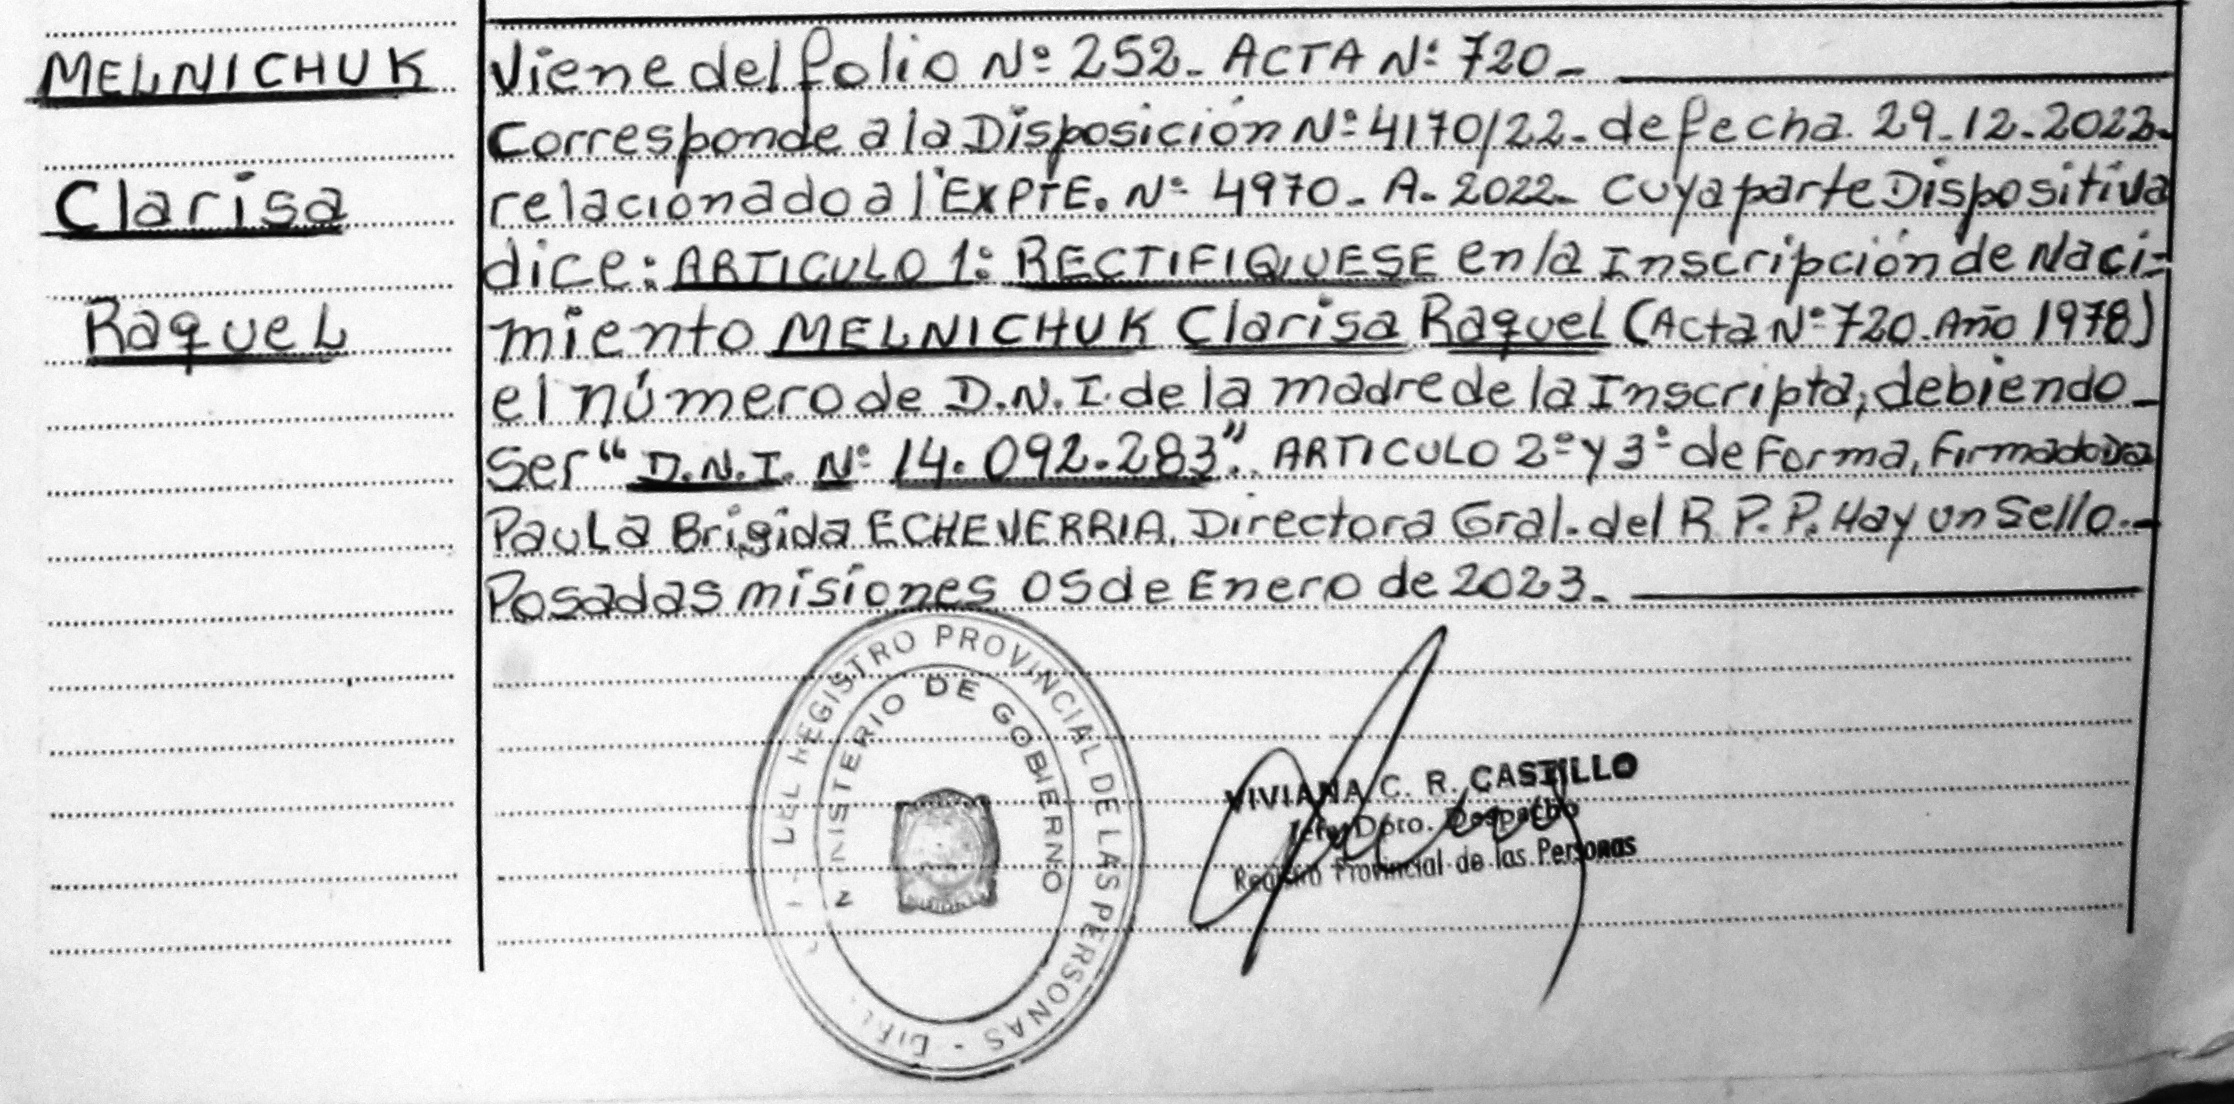 MELNICHUK
Clarisa
Raquel
Viene del folio Nº 252_ ACTA Nº 720_
Corresponde a la Disposición Nº 4170/22_ de fecha. 29_12_2022_
relacionado al Expte. Nº 4970_ A_ 2022_ cuya parte Dispositiva
dice: ARTICULO 1: RECTIFIQUESE en la Inscripción de Naci-
miento MELNICHUK Clarisa Raquel (Acta Nº 720. Año 1978)
el número de D.N.I. de la madre de la Inscripta, debiendo_
Ser "D.N.I. Nº 14.092.283". ARTICULO 2º y 3º de Forma, Firmado
Paula Brigida ECHEVERRIA, Directora Gral. del R.P.P. Hay un Sello._
Posadas misiones 05 de Enero de 2023._
REGISTRO PROVINCIAL DE LAS PERSONAS -
DE GOBIERNO
VIVIANA C. R. CASTILLO
Dpto. Despacho
Registro Provincial de las Personas